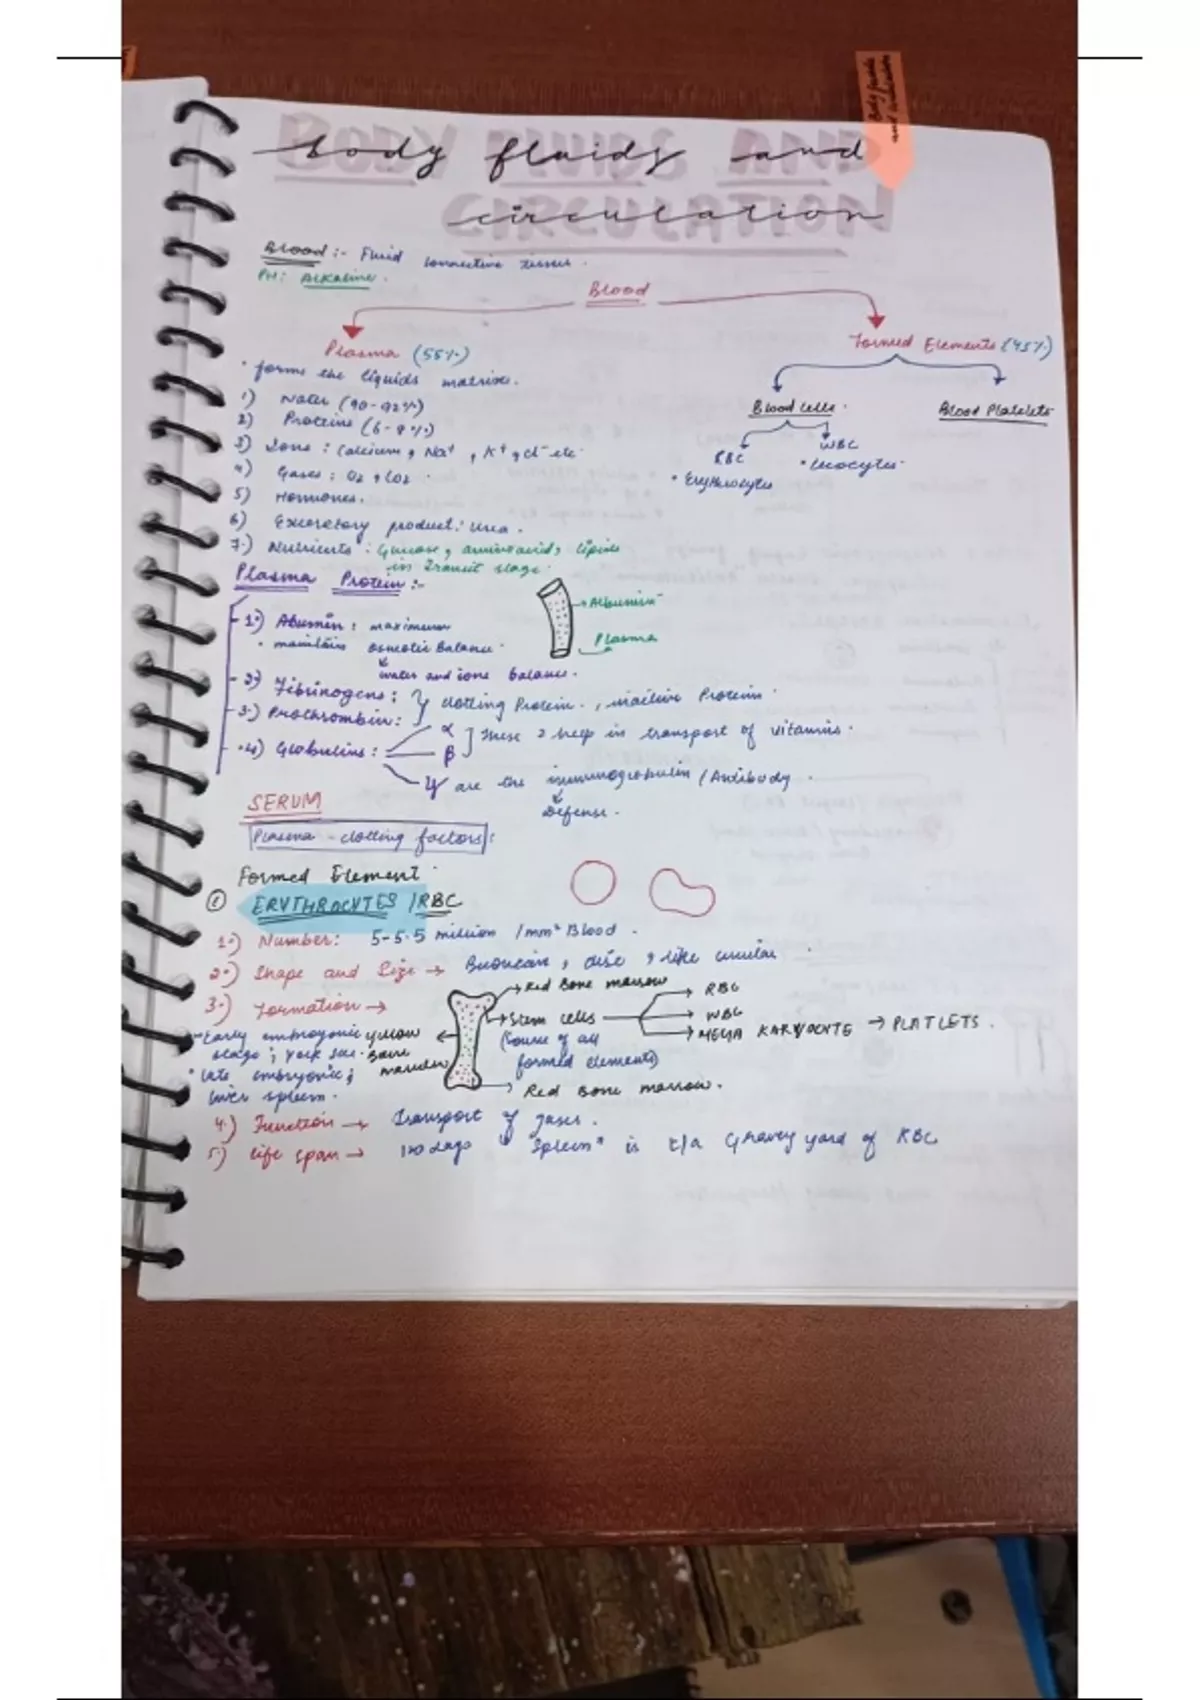 Body fluids and
BODY FLUIDS AND
circulation
CIRCULATION
Body fluids
and circulation
Blood :- Fluid connective tissues.
PH: Alkaline.
Blood
Plasma (55%)
Formed Elements (45%)
• forms the liquids matrix.
Blood cells.
Blood Platelets
RBC
WBC
• Erythrocytes
• Leucocytes
1) Water (90-92%)
2) Proteins (6-8%)
3) Ions : Calcium, Na+, K+, Cl- etc
4) Gases : O2, CO2
5) Hormones.
6) Excretory product: urea.
7.) Nutrients : Glucose, amino acid, lipids
in Transit stage.
Plasma Protein :-
1.) Abumin : maximum
• maintain osmotic Balance.
water and ions balance.
Albumin
Plasma
2.) Fibrinogens :
3.) Prothrombin :
clotting Protein, inactive Protein.
4.) Globulins :
α
β
these 2 help in transport of vitamins.
γ are the immunoglobulin / Antibody.
Defense.
SERUM
Plasma - clotting factors
Formed Element
① ERYTHROCYTES / RBC
1.) Number: 5-5.5 million /mm³ Blood.
2.) Shape and Size → Biconcave, disc, like circular
3.) Formation →
Red Bone marrow
Stem cells
(source of all
formed elements)
RBC
WBC
MEGA KARYOCYTE → PLATLETS.
Red Bone marrow.
yellow
Bone
marrow
- Early embroyonic
stage ; York sac.
• late embryonic ;
liver spleen.
4.) Function → Transport of gases.
5.) life span → 120 days "Spleen" is t/a Gravey yard of RBC